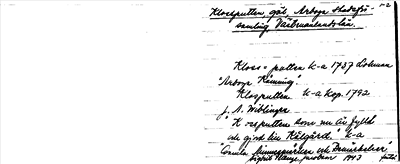 Klosputten, gat Arboga stadsfö- 1-2
samling, Västmanlands län.
Kloss-putten k-a 1737 Lohman
"Arboga Känning".
Klosputten k-a kop. 1792
J. A. Wiblinge
"K osputten som nu är fylld
och gjord till Kålgård." k-a
"Gamla Minnesmärken och
Sigurd 1943